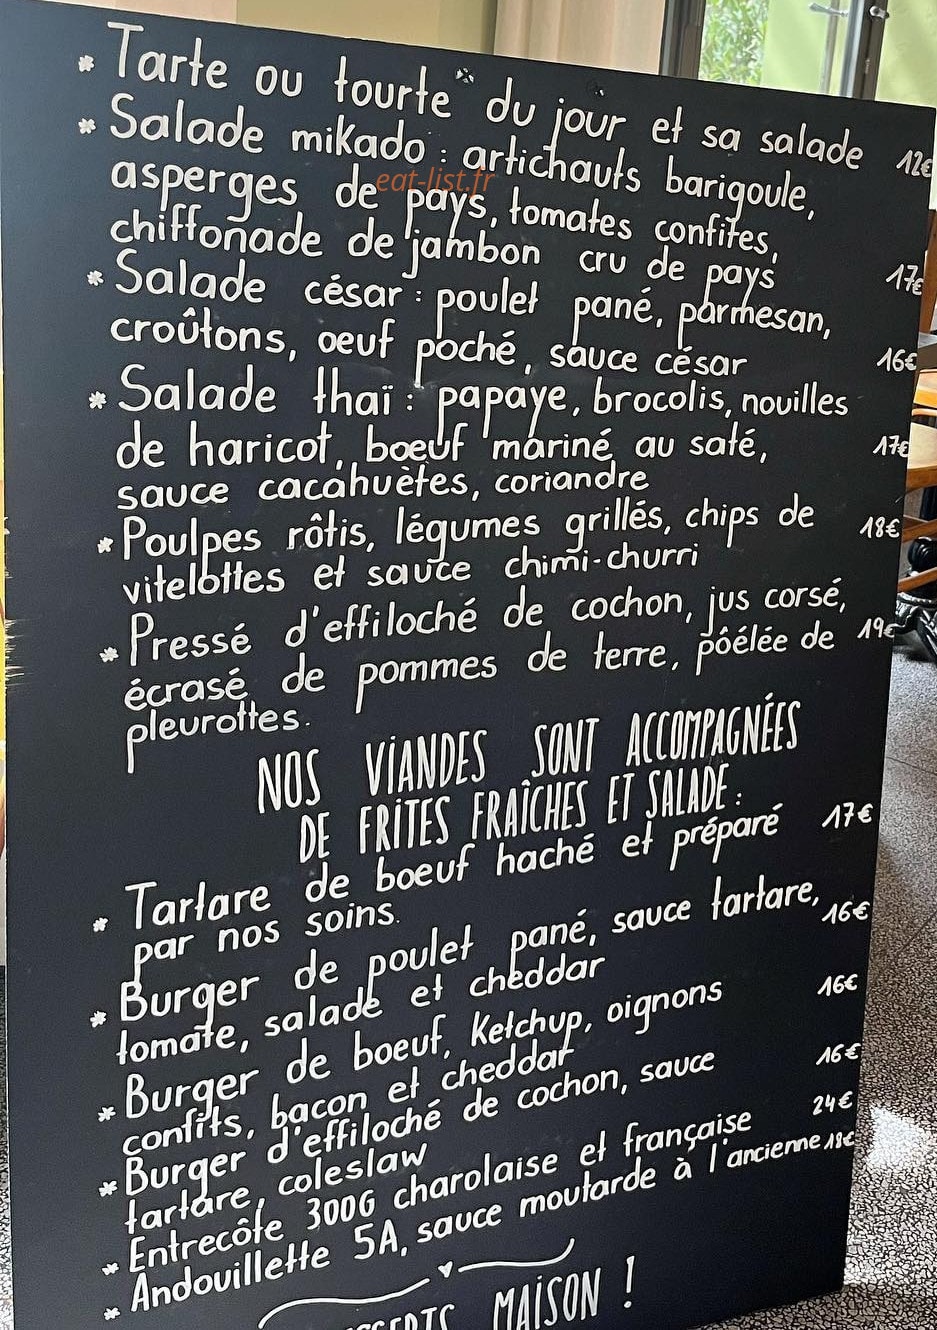 * Tarte ou tourte du jour et sa salade 12€
* Salade mikado : artichauts barigoule,
asperges de pays, tomates confites,
chiffonade de jambon cru de pays 17€
eat-list.fr
* Salade césar : poulet pané, parmesan,
croûtons, oeuf poché, sauce césar 16€
* Salade thaï : papaye, brocolis, nouilles
de haricot, boeuf mariné au saté, 17€
sauce cacahuètes, coriandre
* Poulpes rôtis, légumes grillés, chips de 18€
vitelottes et sauce chimi-churri
* Pressé d'effiloché de cochon, jus corsé, 19€
écrasé de pommes de terre, pôélée de
pleurottes.
NOS VIANDES SONT ACCOMPAGNÉES
DE FRITES FRAÎCHES ET SALADE :
* Tartare de boeuf haché et préparé 17€
par nos soins.
* Burger de poulet pané, sauce tartare, 16€
tomate, salade et cheddar
* Burger de boeuf, Ketchup, oignons 16€
confits, bacon et cheddar
* Burger d'effiloché de cochon, sauce 16€
tartare, coleslaw
* Entrecôte 300G charolaise et française 24€
* Andouillette 5A, sauce moutarde à l'ancienne 18€
MAISON !